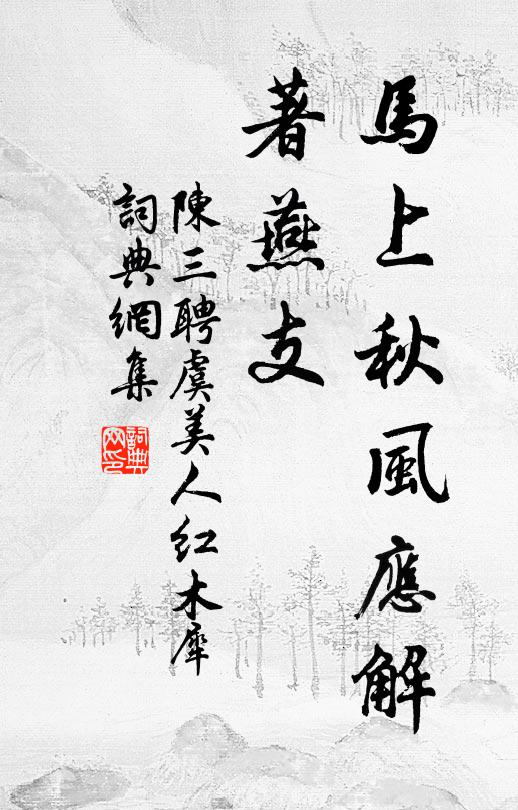 馬上秋風應解
著燕支
陳三聘虞美人紅木犀
詞典網集
詞典
网印